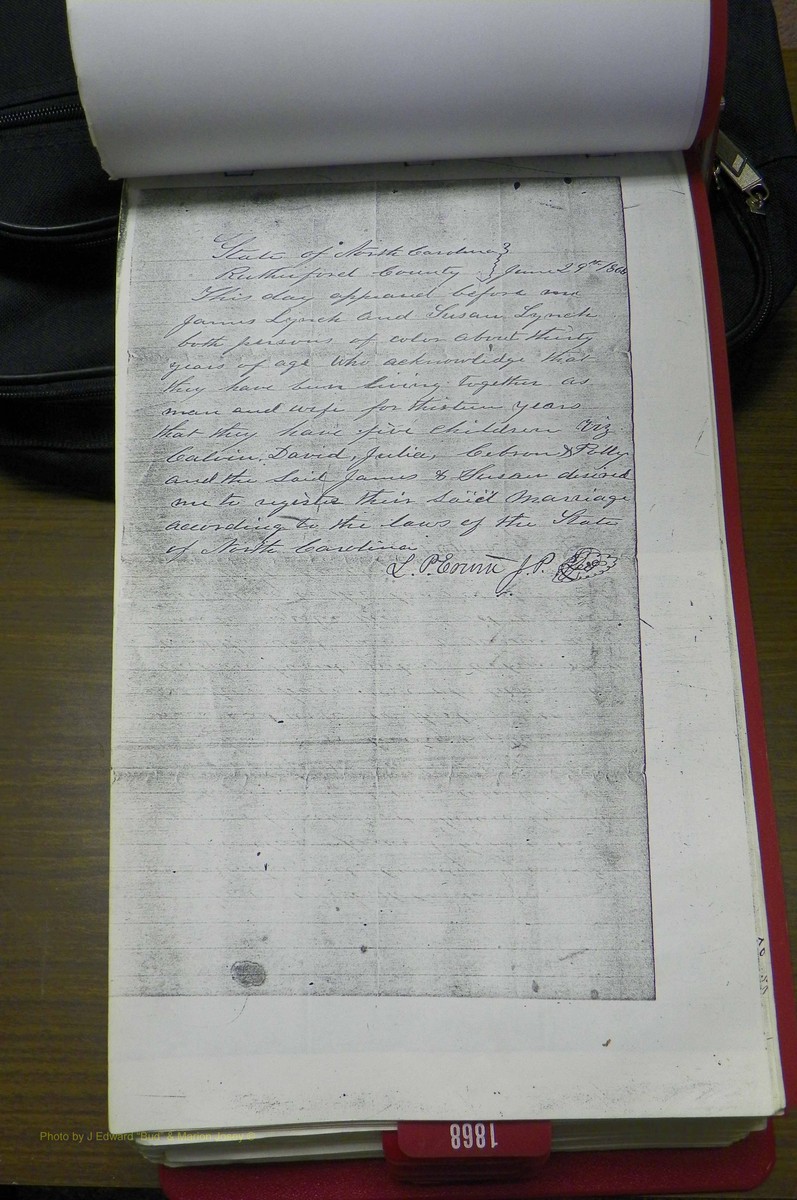 State of North Carolina }
Rutherford County } June 29th 1866
This day appeard before me
James Lynch and Susan Lynch
both persons of color about thirty
years of age who acknowledge that
they have been living together as
man and wife for thirteen years
that they have five children Viz
Calvin, David, Julia, Cebron & Polly
and the said James & Susan desired
me to register their said Marriage
according to the laws of the State
of North Carolina
L. P. Erwin J. P. Seal
1868
Photo by J Edward "Bud" &